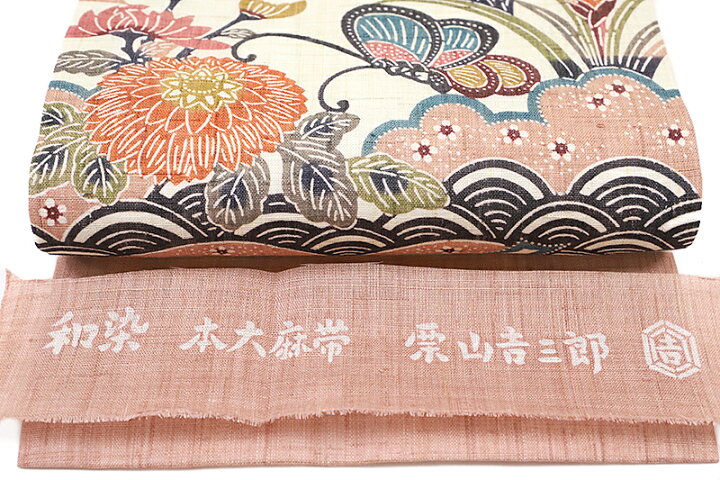 和染 本大麻帯 栗山吉三郎 吉